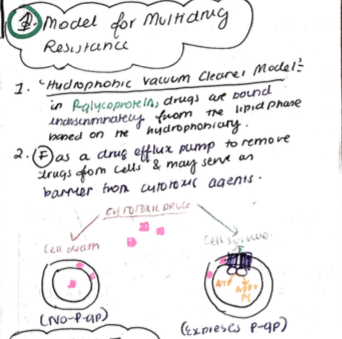 1. Model for Multidrug
Resistance
1. "Hydrophobic Vacuum Cleaner Model":
in P-glycoprotein, drugs are bound
indiscriminately from the lipid phase
based on the hydrophobicity.
2. (F) as a drug efflux pump to remove
drugs from cells & may serve as
barrier from cytotoxic agents.
CYTOTOXIC DRUG
Cell death
Cell survive
ATP
ADP+
Pi
(NO-P-gp)
(Express P-gp)